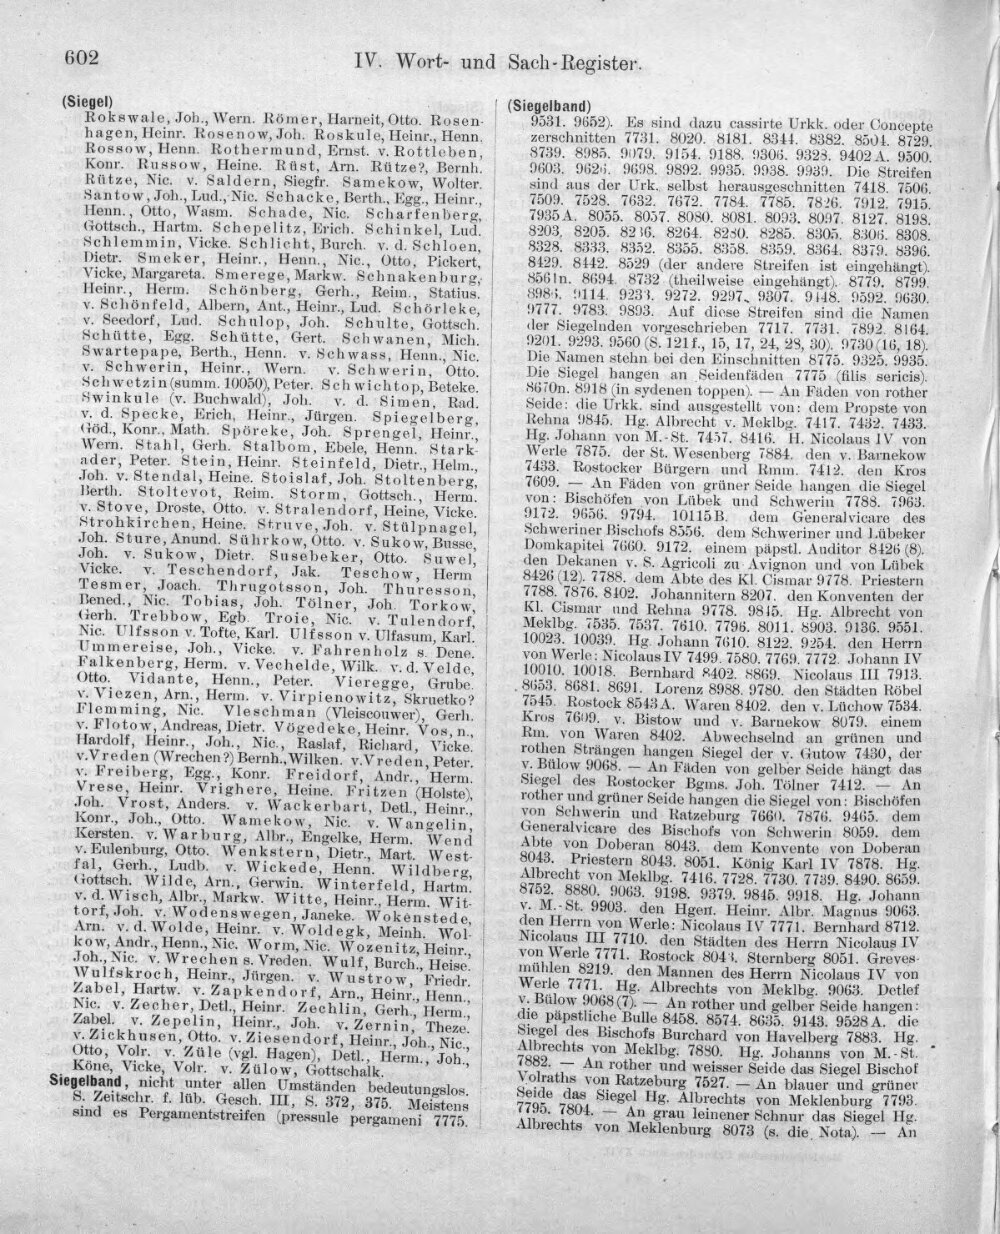 602
IV. Wort- und Sach-Register.
(Siegel)
Rokswale, Joh., Wern. Römer, Harneit, Otto. Rosen-
hagen, Heinr. Rosenow, Joh. Roskule, Heinr., Henn.
Rossow, Henn. Rothermund, Ernst. v. Rottleben,
Konr. Russow, Heine. Rüst, Arn. Rütze?, Bernh.
Rütze, Nic. v. Saldern, Siegfr. Samekow, Wolter.
Santow, Joh., Lud., Nic. Schacke, Berth., Egg., Heinr.,
Henn., Otto, Wasm. Schade, Nic. Scharfenberg,
Gottsch., Hartm. Schepelitz, Erich. Schinkel, Lud.
Schlemmin, Vicke. Schlicht, Burch. v. d. Schloen,
Dietr. Smeker, Heinr., Henn., Nic., Otto, Pickert,
Vicke, Margareta. Smerege, Markw. Schnakenburg,
Heinr., Herm. Schönberg, Gerh., Reim., Statius.
v. Schönfeld, Albern, Ant., Heinr., Lud. Schörleke,
v. Seedorf, Lud. Schulop, Joh. Schulte, Gottsch.
Schütte, Egg. Schütte, Gert. Schwanen, Mich.
Swartepape, Berth., Henn. v. Schwass, Henn., Nic.
v. Schwerin, Heinr., Wern. v. Schwerin, Otto.
Schwetzin (summ. 10050), Peter. Schwichtop, Beteke.
Swinkule (v. Buchwald), Joh. v. d. Simen, Rad.
v. d. Specke, Erich, Heinr., Jürgen. Spiegelberg,
Göd., Konr., Math. Spöreke, Joh. Sprengel, Heinr.,
Wern. Stahl, Gerh. Stalbom, Ebele, Henn. Stark-
ader, Peter. Stein, Heinr. Steinfeld, Dietr., Helm.,
Joh. v. Stendal, Heine. Stoislaf, Joh. Stoltenberg,
Berth. Stoltevot, Reim. Storm, Gottsch., Herm.
v. Stove, Droste, Otto. v. Stralendorf, Heine, Vicke.
Strohkirchen, Heine. Struve, Joh. v. Stülpnagel,
Joh. Sture, Anund. Sührkow, Otto. v. Sukow, Busse,
Joh. v. Sukow, Dietr. Susebeker, Otto. Suwel,
Vicke. v. Teschendorf, Jak. Teschow, Herm
Tesmer, Joach. Thrugotsson, Joh. Thuresson,
Bened., Nic. Tobias, Joh. Tölner, Joh. Torkow,
Gerh. Trebbow, Egb. Troie, Nic. v. Tulendorf,
Nic. Ulfsson v. Tofte, Karl. Ulfsson v. Ulfasum, Karl.
Ummereise, Joh., Vicke. v. Fahrenholz s. Dene.
Falkenberg, Herm. v. Vechelde, Wilk. v. d. Velde,
Otto. Vidante, Henn., Peter. Vieregge, Grube.
v. Viezen, Arn., Herm. v. Virpienowitz, Skruetko?
Flemming, Nic. Vleschman (Vleiscouwer), Gerh.
v. Flotow, Andreas, Dietr. Vögedeke, Heinr. Vos, n.,
Hardolf, Heinr., Joh., Nic., Raslaf, Richard, Vicke.
v. Vreden (Wrechen?) Bernh., Wilken. v. Vreden, Peter.
v. Freiberg, Egg., Konr. Freidorf, Andr., Herm.
Vrese, Heinr. Vrighere, Heine. Fritzen (Holste),
Joh. Vrost, Anders. v. Wackerbart, Detl., Heinr.,
Konr., Joh., Otto. Wamekow, Nic. v. Wangelin,
Kersten. v. Warburg, Albr., Engelke, Herm. Wend
v. Eulenburg, Otto. Wenkstern, Dietr., Mart. West-
fal, Gerh., Ludb. v. Wickede, Henn. Wildberg,
Gottsch. Wilde, Arn., Gerwin. Winterfeld, Hartm.
v. d. Wisch, Albr., Markw. Witte, Heinr., Herm. Wit-
torf, Joh. v. Wodenswegen, Janeke. Wokenstede,
Arn. v. d. Wolde, Heinr. v. Woldegk, Meinh. Wol-
kow, Andr., Henn., Nic. Worm, Nic. Wozenitz, Heinr.,
Joh., Nic. v. Wrechen s. Vreden. Wulf, Burch., Heise.
Wulfskroch, Heinr., Jürgen. v. Wustrow, Friedr.
Zabel, Hartw. v. Zapkendorf, Arn., Heinr., Henn.,
Nic. v. Zecher, Detl., Heinr. Zechlin, Gerh., Herm.,
Zabel. v. Zepelin, Heinr., Joh. v. Zernin, Theze.
v. Zickhusen, Otto. v. Ziesendorf, Heinr., Joh., Nic.,
Otto, Volr. v. Züle (vgl. Hagen), Detl., Herm., Joh.,
Köne, Vicke, Volr. v. Zülow, Gottschalk.
Siegelband, nicht unter allen Umständen bedeutungslos.
S. Zeitschr. f. lüb. Gesch. III, S. 372, 375. Meistens
sind es Pergamentstreifen (pressule pergameni 7775.
(Siegelband)
9531. 9652). Es sind dazu cassirte Urkk. oder Concepte
zerschnitten 7731. 8020. 8181. 8344. 8382. 8504. 8729.
8739. 8985. 9079. 9154. 9188. 9306. 9328. 9402 A. 9500.
9603. 9626. 9698. 9892. 9935. 9938. 9939. Die Streifen
sind aus der Urk. selbst herausgeschnitten 7418. 7506.
7509. 7528. 7632. 7672. 7784. 7785. 7826. 7912. 7915.
7935 A. 8055. 8057. 8080. 8081. 8093. 8097. 8127. 8198.
8203. 8205. 8236. 8264. 8280. 8285. 8305. 8306. 8308.
8328. 8333. 8352. 8355. 8358. 8359. 8364. 8379. 8396.
8429. 8442. 8529 (der andere Streifen ist eingehängt).
8561n. 8694. 8732 (theilweise eingehängt). 8779. 8799.
8986. 9114. 9233. 9272. 9297. 9307. 9448. 9592. 9630.
9777. 9783. 9893. Auf diese Streifen sind die Namen
der Siegelnden vorgeschrieben 7717. 7731. 7892. 8164.
9201. 9293. 9560 (S. 121 f., 15, 17, 24, 28, 30). 9730 (16, 18).
Die Namen stehn bei den Einschnitten 8775. 9325. 9935.
Die Siegel hangen an Seidenfäden 7775 (filis sericis).
8670n. 8918 (in sydenen toppen). — An Fäden von rother
Seide: die Urkk. sind ausgestellt von: dem Propste von
Rehna 9845. Hg. Albrecht v. Meklbg. 7417. 7432. 7433.
Hg. Johann von M.-St. 7457. 8416. H. Nicolaus IV von
Werle 7875. der St. Wesenberg 7884. den v. Barnekow
7433. Rostocker Bürgern und Rmm. 7412. den Kros
7609. — An Fäden von grüner Seide hangen die Siegel
von: Bischöfen von Lübek und Schwerin 7788. 7963.
9172. 9656. 9794. 10115 B. dem Generalvicare des
Schweriner Bischofs 8556. dem Schweriner und Lübeker
Domkapitel 7660. 9172. einem päpstl. Auditor 8426 (8).
den Dekanen v. S. Agricoli zu Avignon und von Lübek
8426 (12). 7788. dem Abte des Kl. Cismar 9778. Priestern
7788. 7876. 8402. Johannitern 8207. den Konventen der
Kl. Cismar und Rehna 9778. 9845. Hg. Albrecht von
Meklbg. 7535. 7537. 7610. 7796. 8011. 8903. 9136. 9551.
10023. 10039. Hg. Johann 7610. 8122. 9254. den Herrn
von Werle: Nicolaus IV 7499. 7580. 7769. 7772. Johann IV
10010. 10018. Bernhard 8402. 8869. Nicolaus III 7913.
8653. 8681. 8691. Lorenz 8988. 9780. den Städten Röbel
7545. Rostock 8543 A. Waren 8402. den v. Lüchow 7534.
Kros 7609. v. Bistow und v. Barnekow 8079. einem
Rm. von Waren 8402. Abwechselnd an grünen und
rothen Strängen hangen Siegel der v. Gutow 7430, der
v. Bülow 9068. — An Fäden von gelber Seide hängt das
Siegel des Rostocker Bgms. Joh. Tölner 7412. — An
rother und grüner Seide hangen die Siegel von: Bischöfen
von Schwerin und Ratzeburg 7660. 7876. 9465. dem
Generalvicare des Bischofs von Schwerin 8059. dem
Abte von Doberan 8043. dem Konvente von Doberan
8043. Priestern 8043. 8051. König Karl IV 7878. Hg.
Albrecht von Meklbg. 7416. 7728. 7730. 7739. 8490. 8659.
8752. 8880. 9063. 9198. 9379. 9845. 9918. Hg. Johann
v. M.-St. 9903. den Hgen. Heinr. Albr. Magnus 9063.
den Herrn von Werle: Nicolaus IV 7771. Bernhard 8712.
Nicolaus III 7710. den Städten des Herrn Nicolaus IV
von Werle 7771. Rostock 8043. Sternberg 8051. Greves-
mühlen 8219. den Mannen des Herrn Nicolaus IV von
Werle 7771. Hg. Albrechts von Meklbg. 9063. Detlef
v. Bülow 9068 (7). — An rother und gelber Seide hangen:
die päpstliche Bulle 8458. 8574. 8635. 9143. 9528 A. die
Siegel des Bischofs Burchard von Havelberg 7883. Hg.
Albrechts von Meklbg. 7880. Hg. Johanns von M.-St.
7882. — An rother und weisser Seide das Siegel Bischof
Volraths von Ratzeburg 7527. — An blauer und grüner
Seide das Siegel Hg. Albrechts von Meklenburg 7793.
7795. 7804. — An grau leinener Schnur das Siegel Hg.
Albrechts von Meklenburg 8073 (s. die Nota). — An